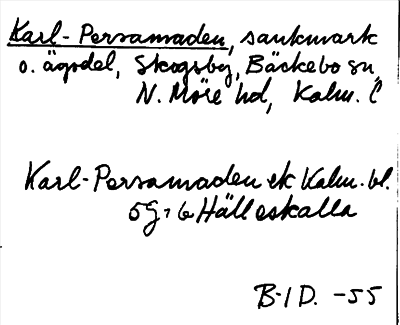 Karl-Persamaden, sankmark
o. ägodel, Skogsby, Bäckebo sn,
N. Möre hd, Kalm. l
Karl-Persamaden ek Kalm. bl.
5G, 6 Hälleskalla
B-I D. -55